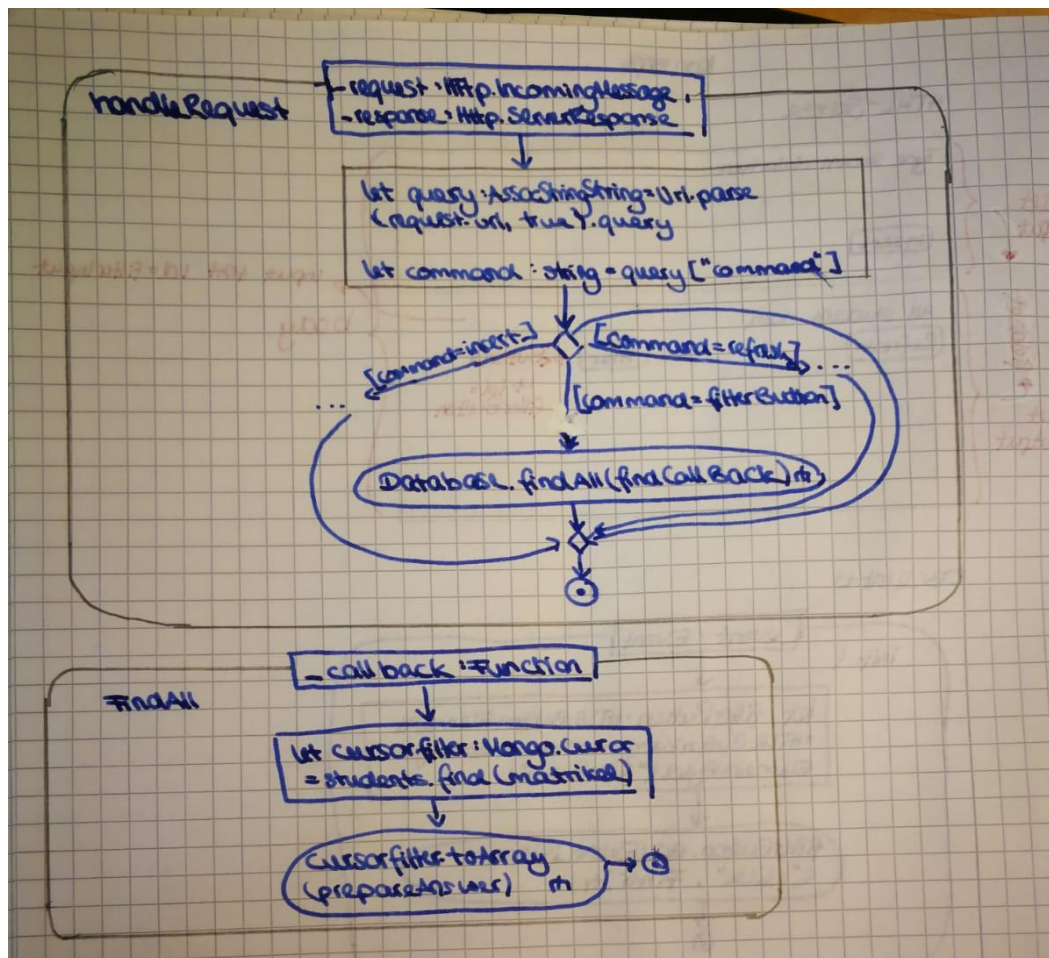 handleRequest
_request: Http.IncomingMessage,
_response: Http.ServerResponse
let query: AssocStringString = Url.parse
(request.url, true).query
let command: string = query["command"]
[command=insert]
[command=refresh]
...
...
[command=filterButton]
Database.findAll(findCallBack)
FindAll
_callback: Function
let cursorfilter: Mongo.Cursor
= students.find(matrikel)
cursorfilter.toArray
(prepareAnswer)